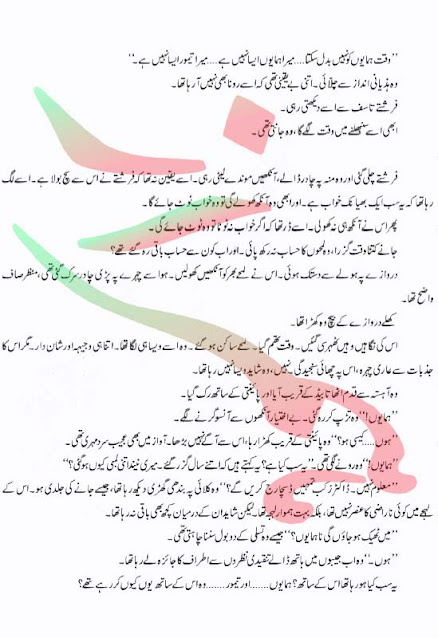 ’’وقت ہمایوں کو نہیں بدل سکتا.....میرا ہمایوں ایسا نہیں ہے.....میرا تیمور ایسا نہیں ہے۔‘‘
وہ ہذیانی انداز سے چلائی۔ اتنی بے یقینی تھی کہ اسے رونا بھی نہیں آ رہا تھا۔
فرشتے تاسف سے اسے دیکھتی رہی۔
ابھی اسے سنبھلنے میں وقت لگے گا، وہ جانتی تھی۔
فرشتے چلی گئی اور وہ منہ پہ چادر ڈالے، آنکھیں موندے لیٹی رہی۔ اسے یقین نہ تھا کہ فرشتے نے اس سے سچ بولا ہے۔ اسے لگ
رہا تھا کہ یہ سب ایک بھیانک خواب ہے۔ اور ابھی وہ آنکھ کھولے گی تو وہ خواب ٹوٹ جائے گا۔
پھر اس نے آنکھ ہی نہ کھولی۔ اسے ڈر تھا کہ اگر خواب نہ ٹوٹا تو وہ ٹوٹ جائے گی۔
جانے کتنا وقت گزرا، وہ لمحوں کا حساب نہ رکھ پائی۔ اور اب کون سے حساب باقی رہ گئے تھے؟
دروازے پہ ہولے سے دستک ہوئی۔ اس نے لمحے بھر کو آنکھیں کھولیں۔ ہوا سے چہرے پہ پڑی چادر سرک گئی تھی، منظر صاف
واضح تھا۔
کھلے دروازے کے بیچ وہ کھڑا تھا۔
اس کی نگاہیں وہیں ٹھہر سی گئیں۔ وقت تھم گیا۔ لمحے ساکن ہو گئے۔ وہ اسے ویسا ہی لگا تھا۔ اتنا ہی وجیہہ اور شان دار۔ مگر اس کا
جذبات سے عاری چہرہ، اس پہ چھائی سنجیدگی۔ نہیں، وہ شاید ویسا نہیں رہا تھا۔
وہ آہستہ سے قدم اٹھاتا بیڈ کے قریب آیا اور پائینتی کے ساتھ رک گیا۔
’’ہمایوں!‘‘ وہ تڑپ کر رہ گئی۔ بے اختیار آنکھوں سے آنسو گرنے لگے۔
’’ہوں.....کیسی ہو؟‘‘ وہ پائینتی کے قریب کھڑا رہا، اس سے آگے نہیں بڑھا۔ آواز میں بھی عجیب سرد مہری تھی۔
’’ہمایوں!‘‘ وہ رونے لگی تھی۔ ’’یہ سب کیا ہے؟ یہ کہتے ہیں کہ اتنے سال گزر گئے۔ میری نیند اتنی لمبی کیوں ہو گئی؟‘‘
’’معلوم نہیں۔ ڈاکٹرز کب تمہیں ڈسچارج کریں گے؟‘‘ وہ کلائی پہ بندھی گھڑی دیکھ رہا تھا، جیسے جانے کی جلدی ہو۔ اس کے
لہجے میں کوئی ناراضی کا عنصر نہیں تھا، بلکہ بہت ہموار لہجہ تھا۔ لیکن شاید ان کے درمیان کچھ بھی باقی نہ رہا تھا۔
’’میں ٹھیک ہو جاؤں گی نا ہمایوں؟‘‘ جیسے وہ تسلی کے دو بول سننا چاہتی تھی۔
’’ہوں۔‘‘ وہ اب جیبوں میں ہاتھ ڈالے تنقیدی نظروں سے اطراف کا جائزہ لے رہا تھا۔
یہ سب کیا ہو رہا تھا اس کے ساتھ؟ ہمایوں.......اور تیمور.......وہ اس کے ساتھ یوں کیوں کر رہے تھے؟